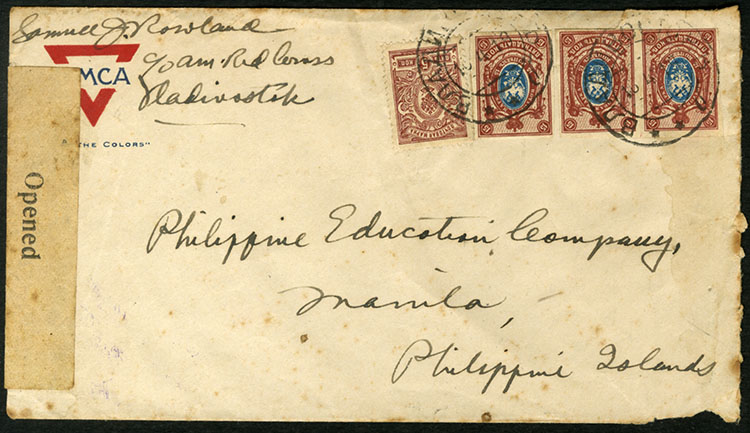 Samuel J. Rowland
c/o Am. Red Cross
Vladivostok
MCA
THE COLORS"
Opened
Philippine Education Company,
Manila,
Philippine Islands